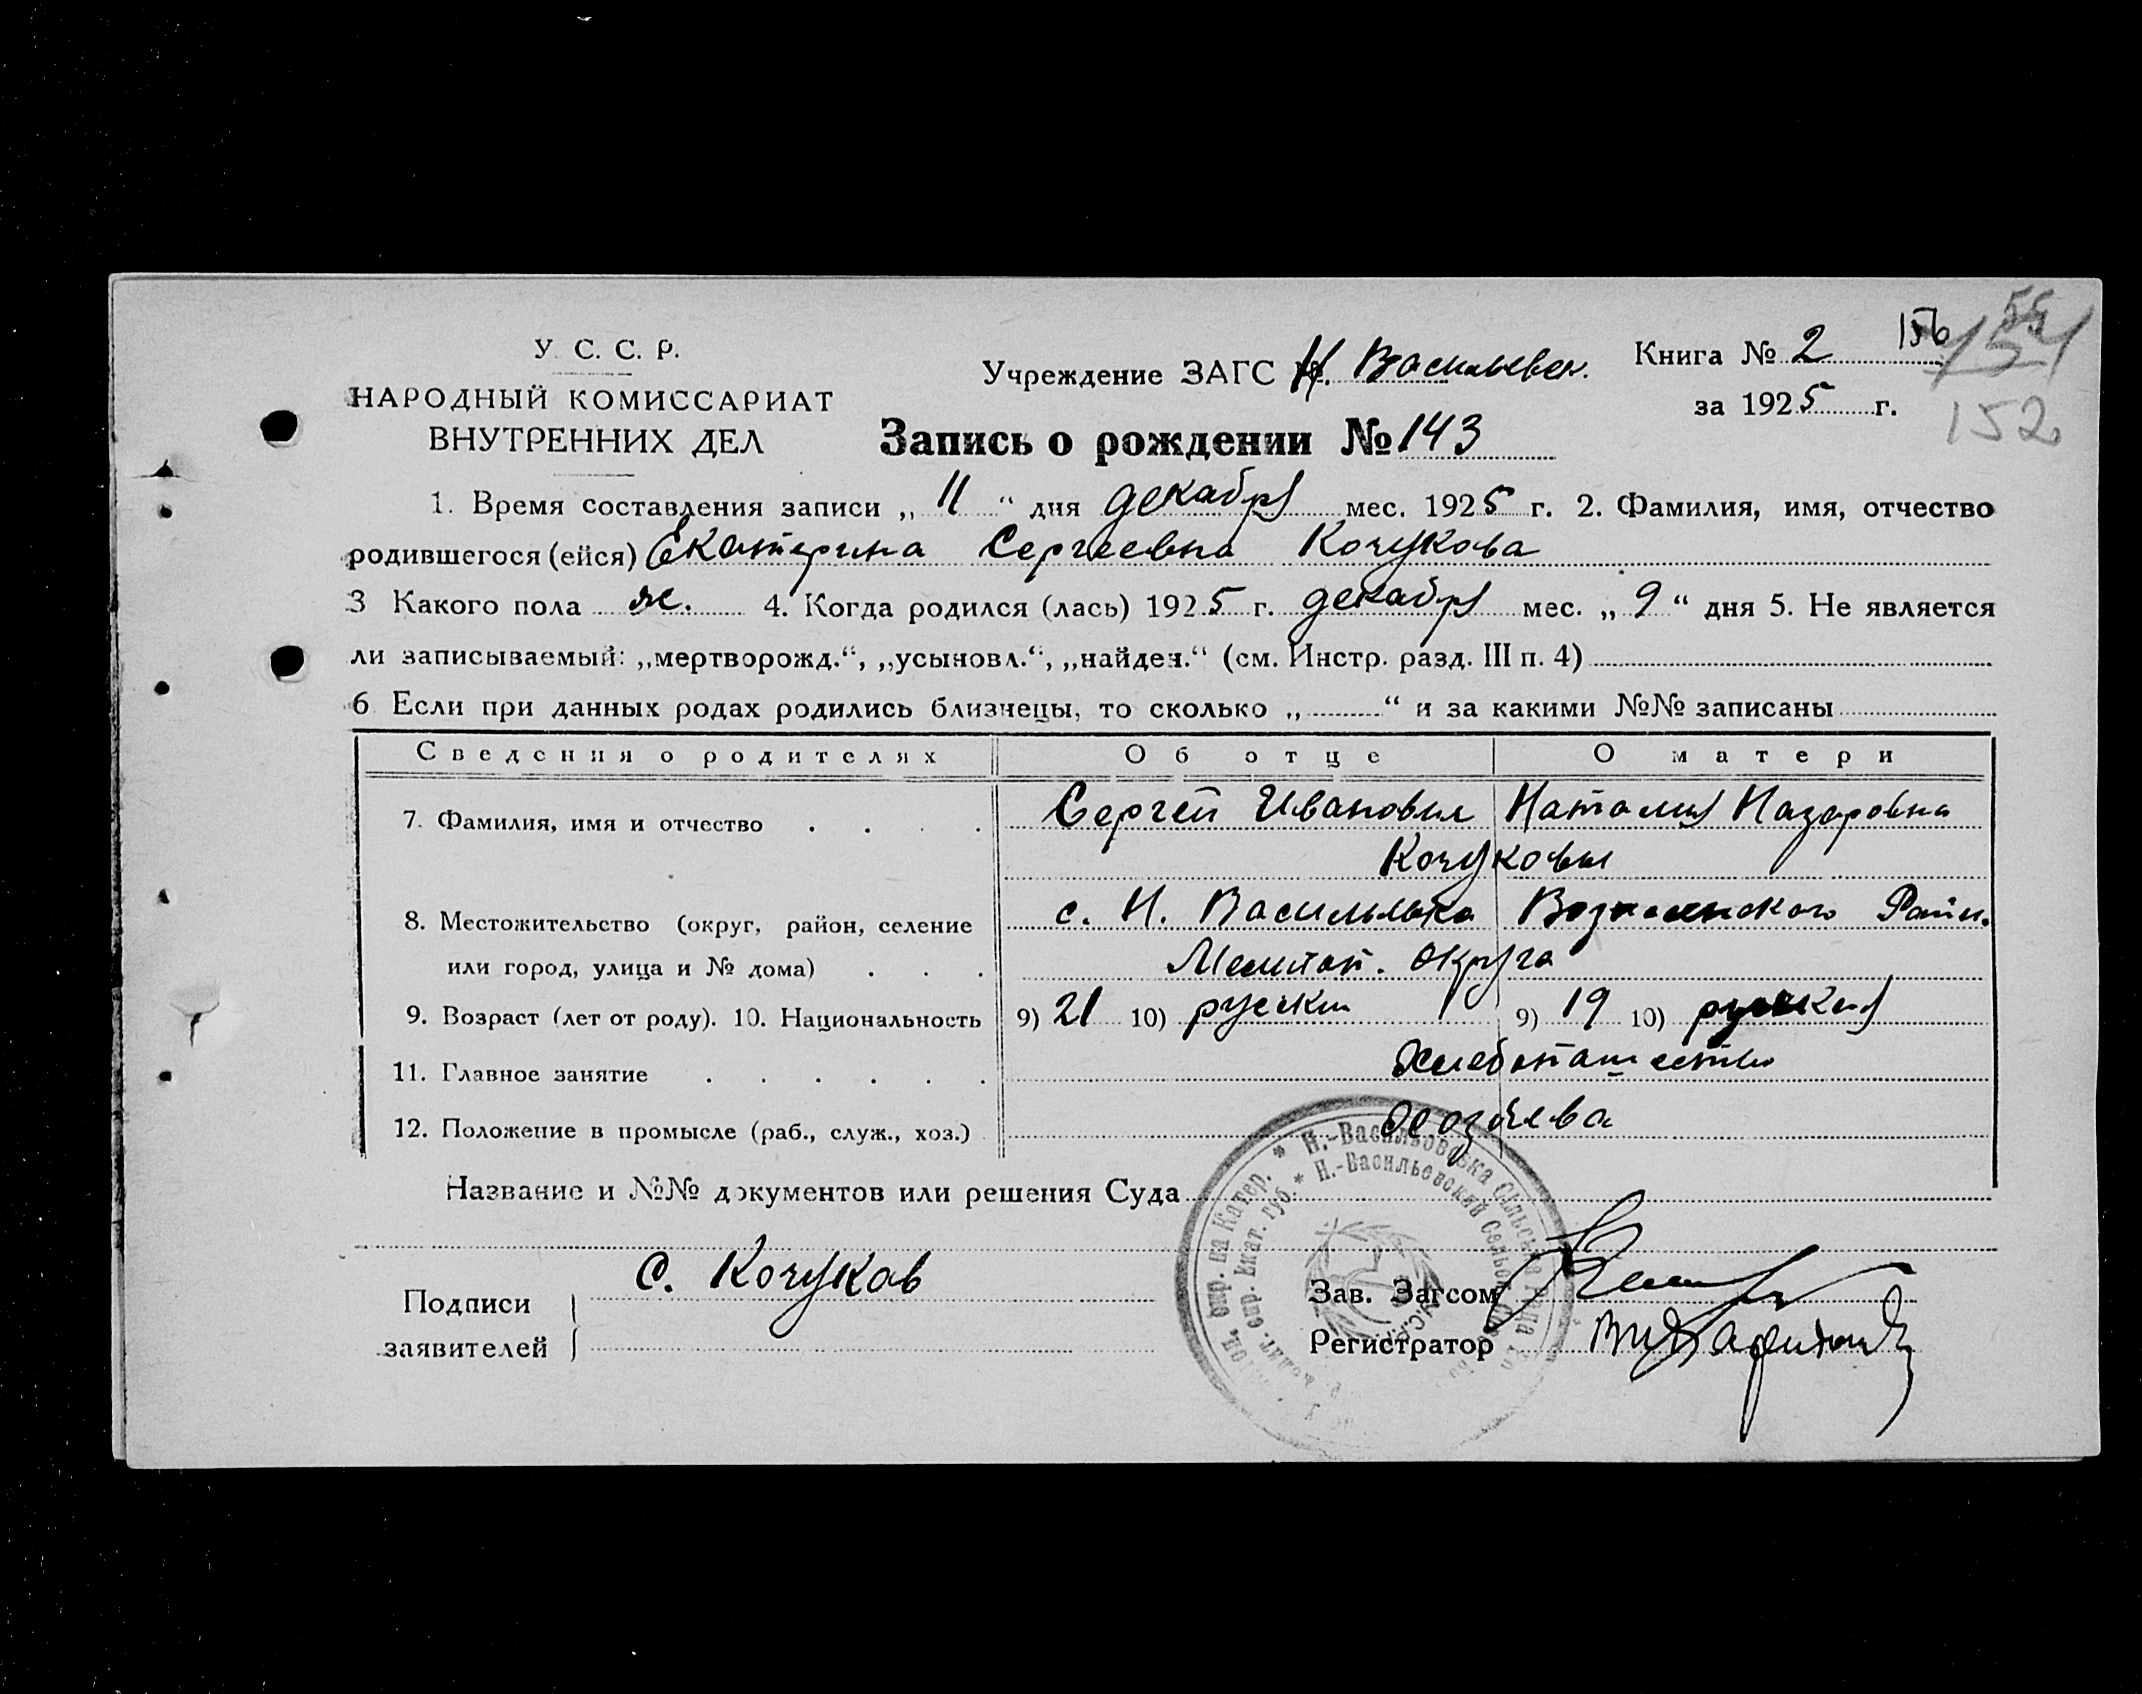 У. С. С. Р.
НАРОДНЫЙ КОМИССАРИАТ
ВНУТРЕННИХ ДЕЛ
Учреждение ЗАГС Н. Васильевск.
Книга № 2
156
154
55
за 1925 г.
152
Запись о рождении № 143
1. Время составления записи „ 11 “ дня декабря мес. 1925 г. 2. Фамилия, имя, отчество
родившегося (ейся) Екатерина Сергеевна Кочукова
3 Какого пола ж. 4. Когда родился (лась) 1925 г. декабря мес. „ 9 “ дня 5. Не является
ли записываемый: „мертворожд.“, „усыновл.“, „найден.“ (см. Инстр. разд. III п. 4)
6 Если при данных родах родились близнецы, то сколько „ “ и за какими №№ записаны
Сведения о родителях Об отце О матери
7. Фамилия, имя и отчество . . . . Сергей Иванович Наталия Назаровна
Кочуковы
8. Местожительство (округ, район, селение с. Н. Васильевка Вознесенского Район.
или город, улица и № дома) . . . Мелитоп. округа
9. Возраст (лет от роду). 10. Национальность 9) 21 10) руский 9) 19 10) руская
11. Главное занятие . . . . . . Хлебопашество
12. Положение в промысле (раб., служ., хоз.) Хозяева
Название и №№ документов или решения Суда
Н.-Васильовська Сільська Рада
Н.-Васильевский Сельсовет
окр. на Катер.
окр. Екат. губ.
У.С.С.Р.
Подписи
заявителей
С. Кочуков
Зав. Загсом
Регистратор